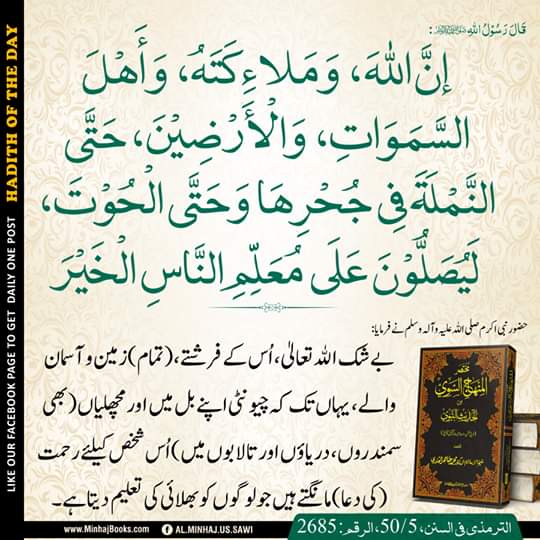 HADITH OF THE DAY
LIKE OUR FACEBOOK PAGE TO GET DAILY ONE POST
قَالَ رَسُوْلُ اللهِ ﷺ:
إِنَّ اللهَ، وَمَلَاءِكَتَهُ، وَأَهْلَ
السَّمَوَاتِ، وَالْأَرْضِيْنَ، حَتَّى
النَّمْلَةَ فِي جُحْرِهَا وَحَتَّى الْحُوْتَ،
لَيُصَلُّوْنَ عَلَى مُعَلِّمِ النَّاسِ الْخَيْرَ
حضور نبی اکرم صلی اللہ علیہ وآلہ وسلم نے فرمایا:
بے شک اللہ تعالیٰ، اُس کے فرشتے، (تمام) زمین و آسمان
والے، یہاں تک کہ چیونٹی اپنے بل میں اور مچھلیاں (بھی
سمندروں، دریاؤں اور تالابوں میں) اُس شخص کیلئے رحمت
(کی دعا) مانگتے ہیں جو لوگوں کو بھلائی کی تعلیم دیتا ہے۔
مختصر
المنهاج السوي
من
الحديث النبوي
الترمذی فی السنن، 50/5، الرقم: 2685
www.MinhajBooks.com
AL.MINHAJ.US.SAWI